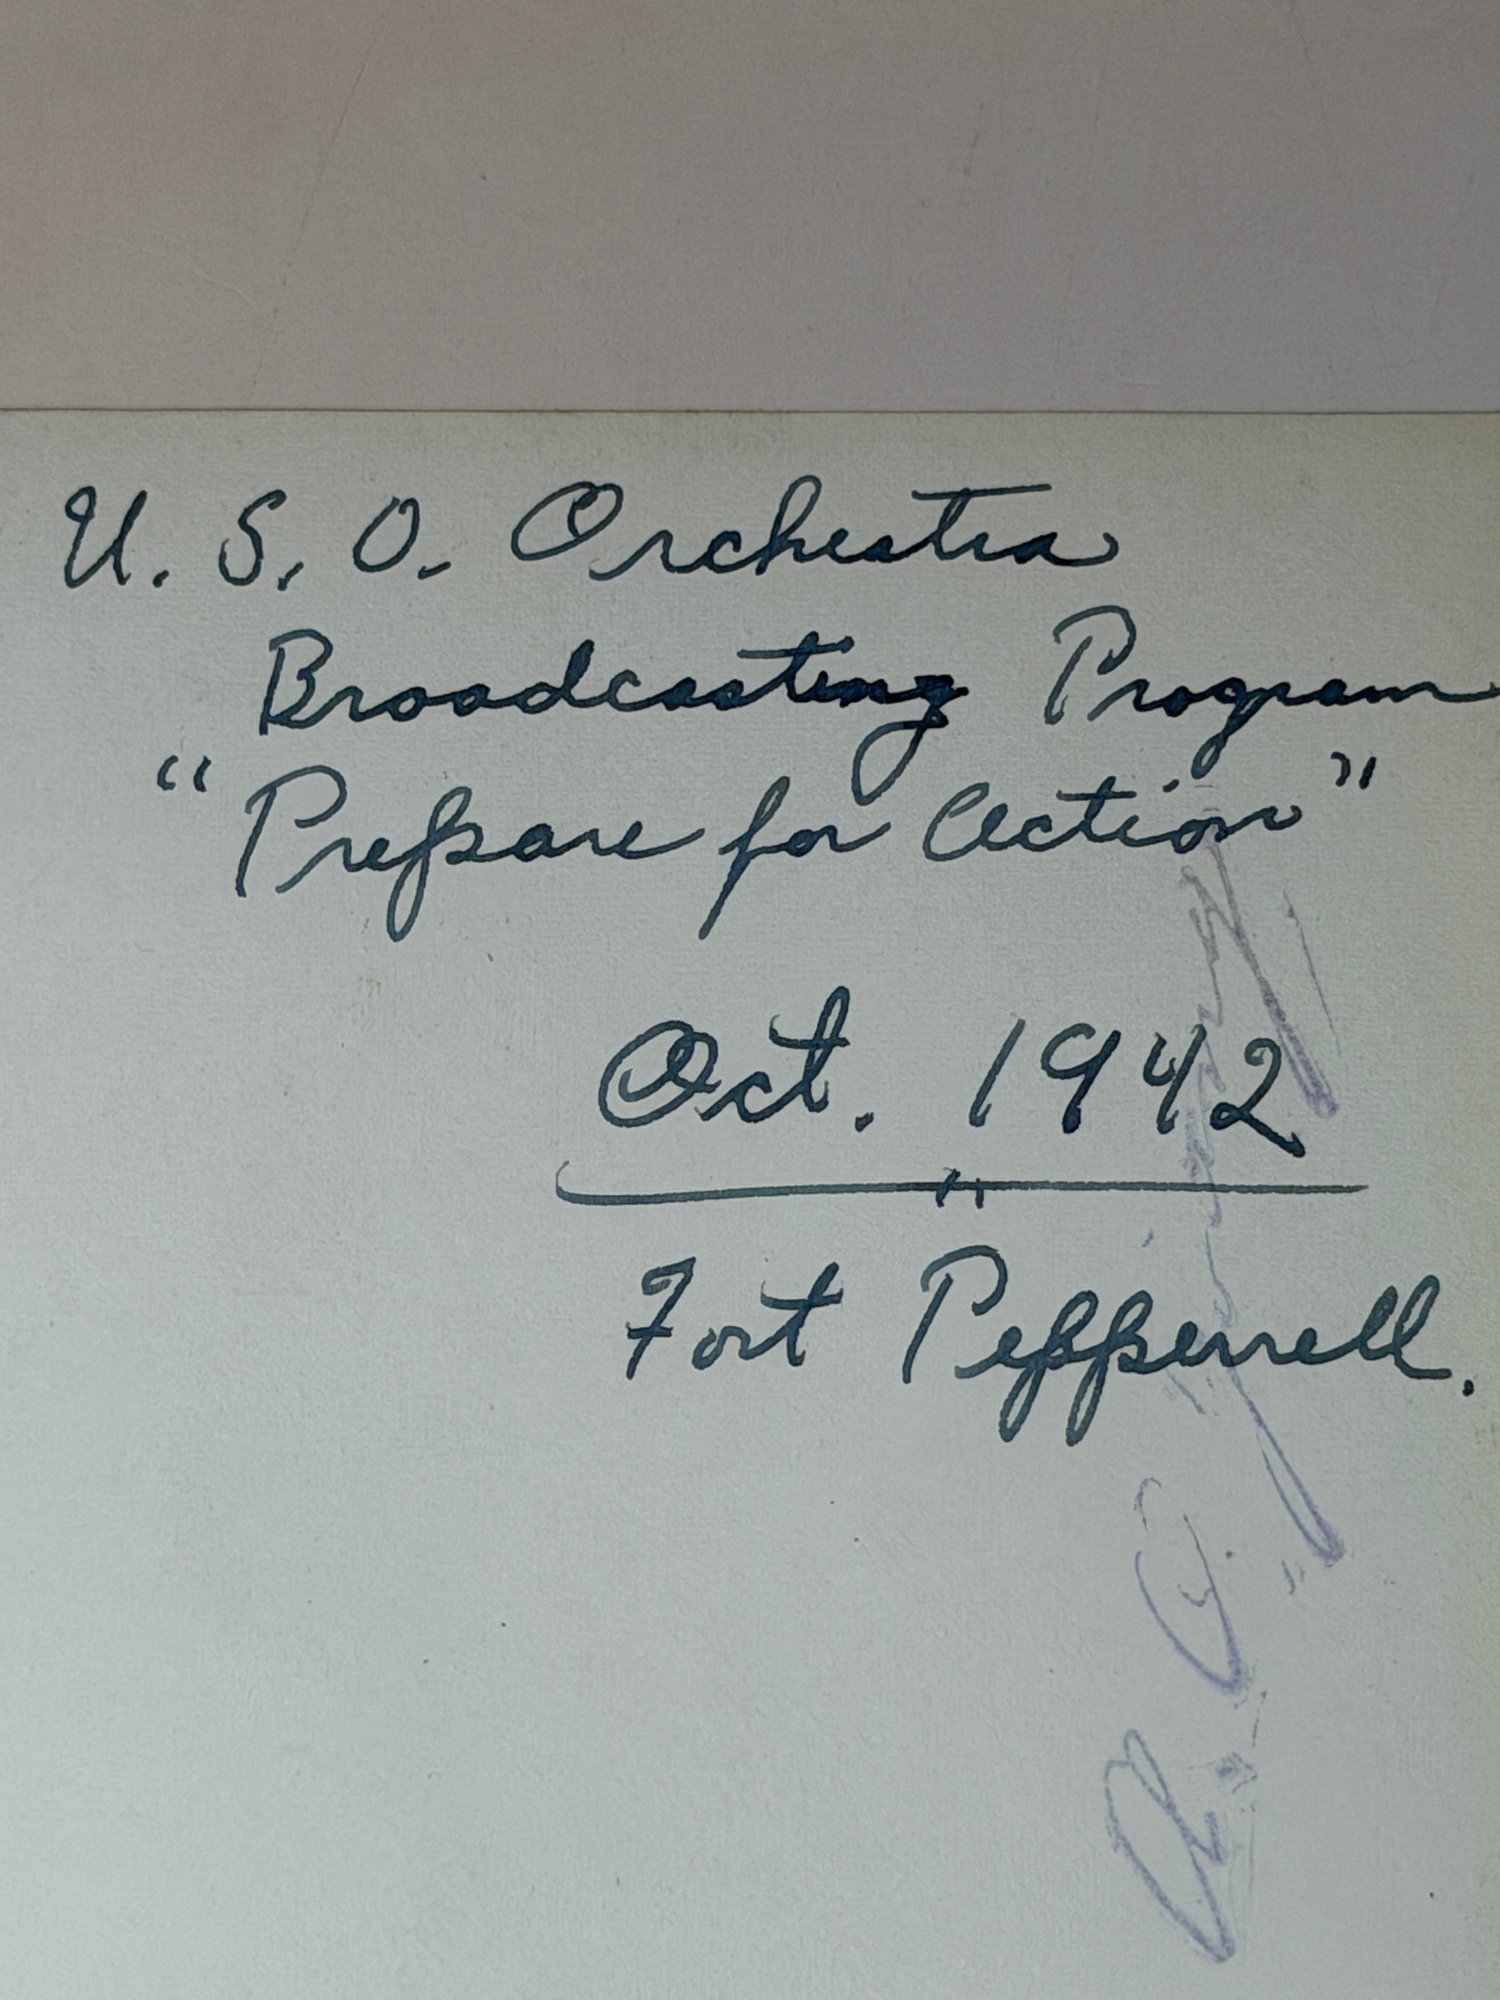 U. S. O. Orchestra
Broadcasting Program
"Prepare for Action"
Oct. 1942
Fort Pepperrell.